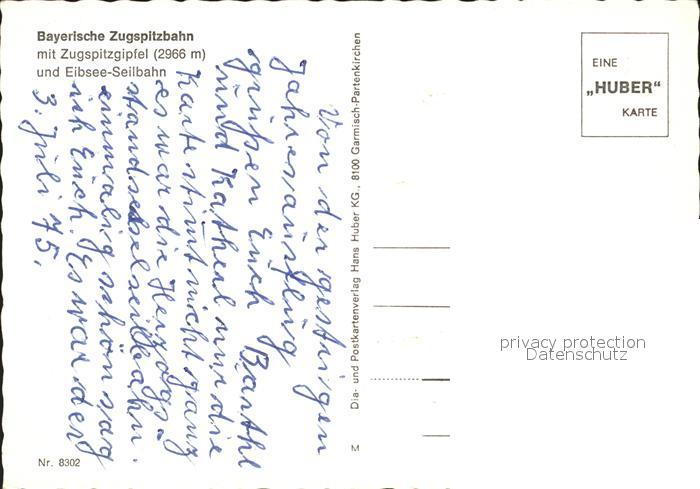 Bayerische Zugspitzbahn
mit Zugspitzgipfel (2966 m)
und Eibsee-Seilbahn
Von der gestrigen
Jahresausflug
grüßen Euch Barthl
und Katherl nur die
Karte stimt nicht ganz
es war die Herzogs-
standsesselseilbahn.
einmalig schön sag
ich Euch. Es war der
3. Juli 75.
Nr. 8302
Dia- und Postkartenverlag Hans Huber KG., 8100 Garmisch-Partenkirchen
M
EINE
„HUBER"
KARTE
privacy protection
Datenschutz